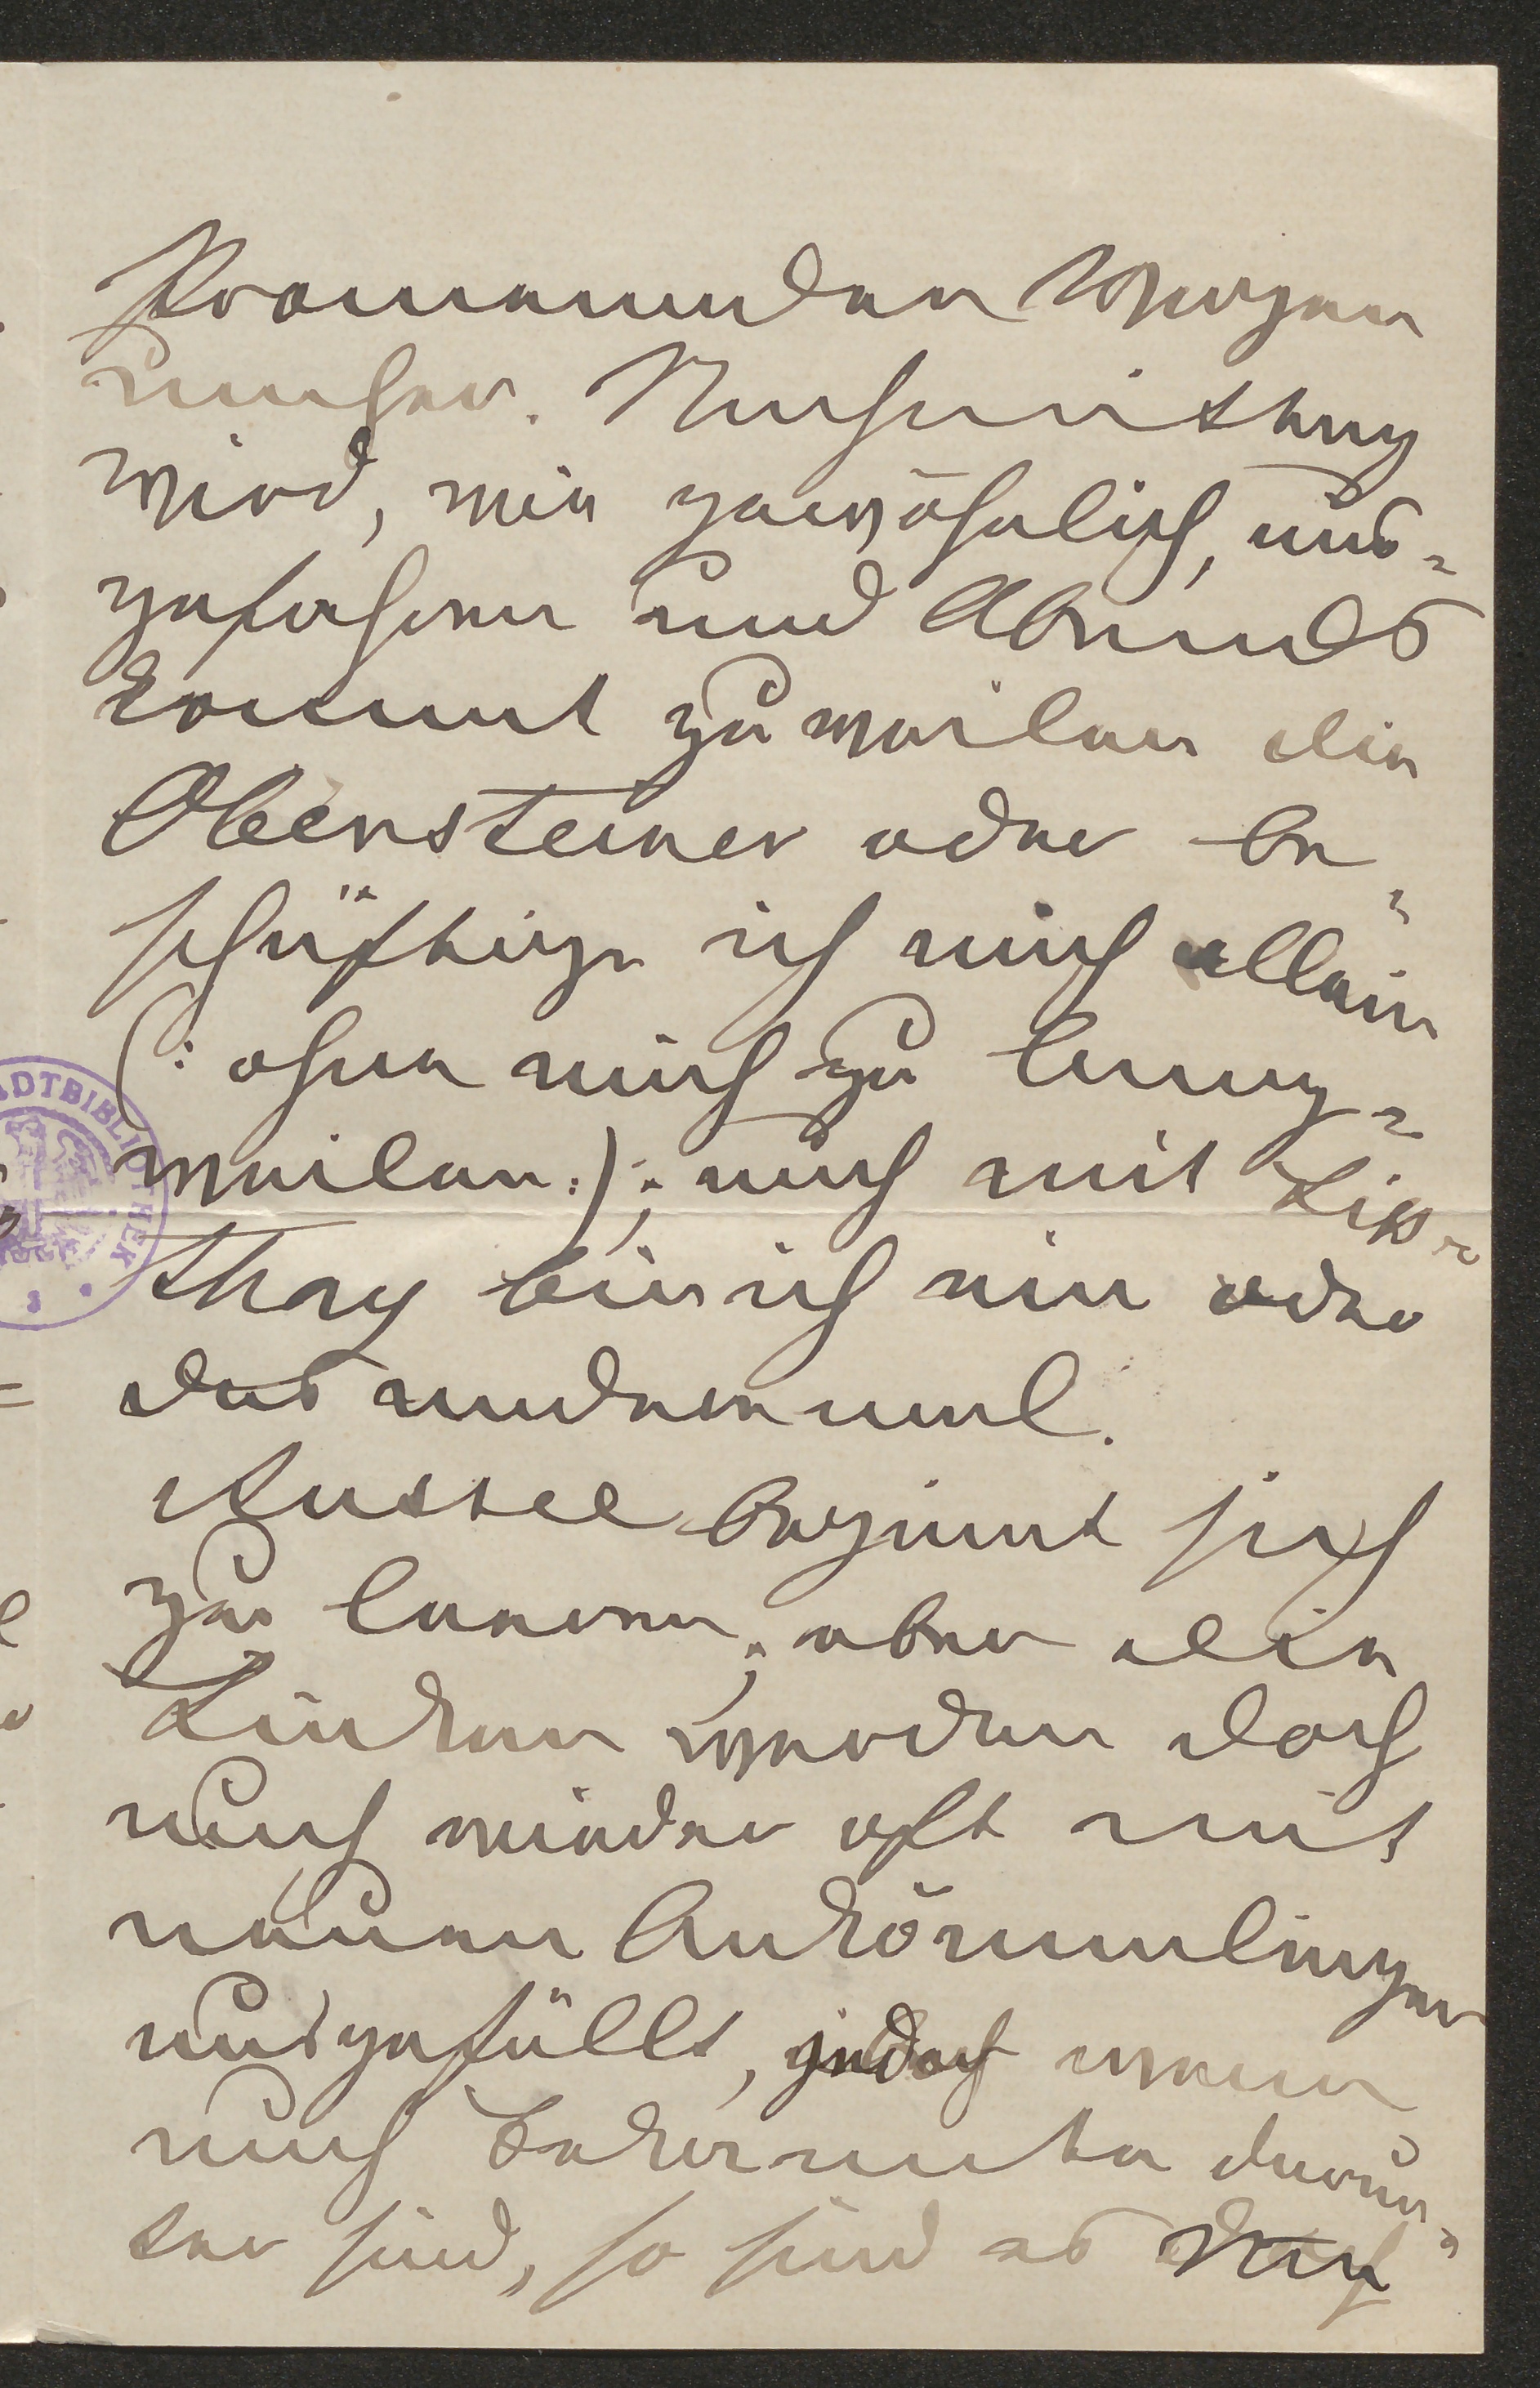 Promenaden Morgen
nuhsev. Nachmittag
wird, wie gewöhnlich, aus=
gefahren und Abends
kommt zuweilen die
Obersteiner oder be=
schäftige ich mich allein
(: ohne mich zu lang=
weilen :); auch mit Lip=
thay bin ich ein oder
das anderemal.
Aussee beginnt sich
zu leeren; aber die
Lücken werden doch
auch wieder oft mit
neuen Ankömmlingen
ausgefüllt, jedoch wenn
auch Bekannte darun=
ter sind, so sind es
STADTBIBLIOTHEK